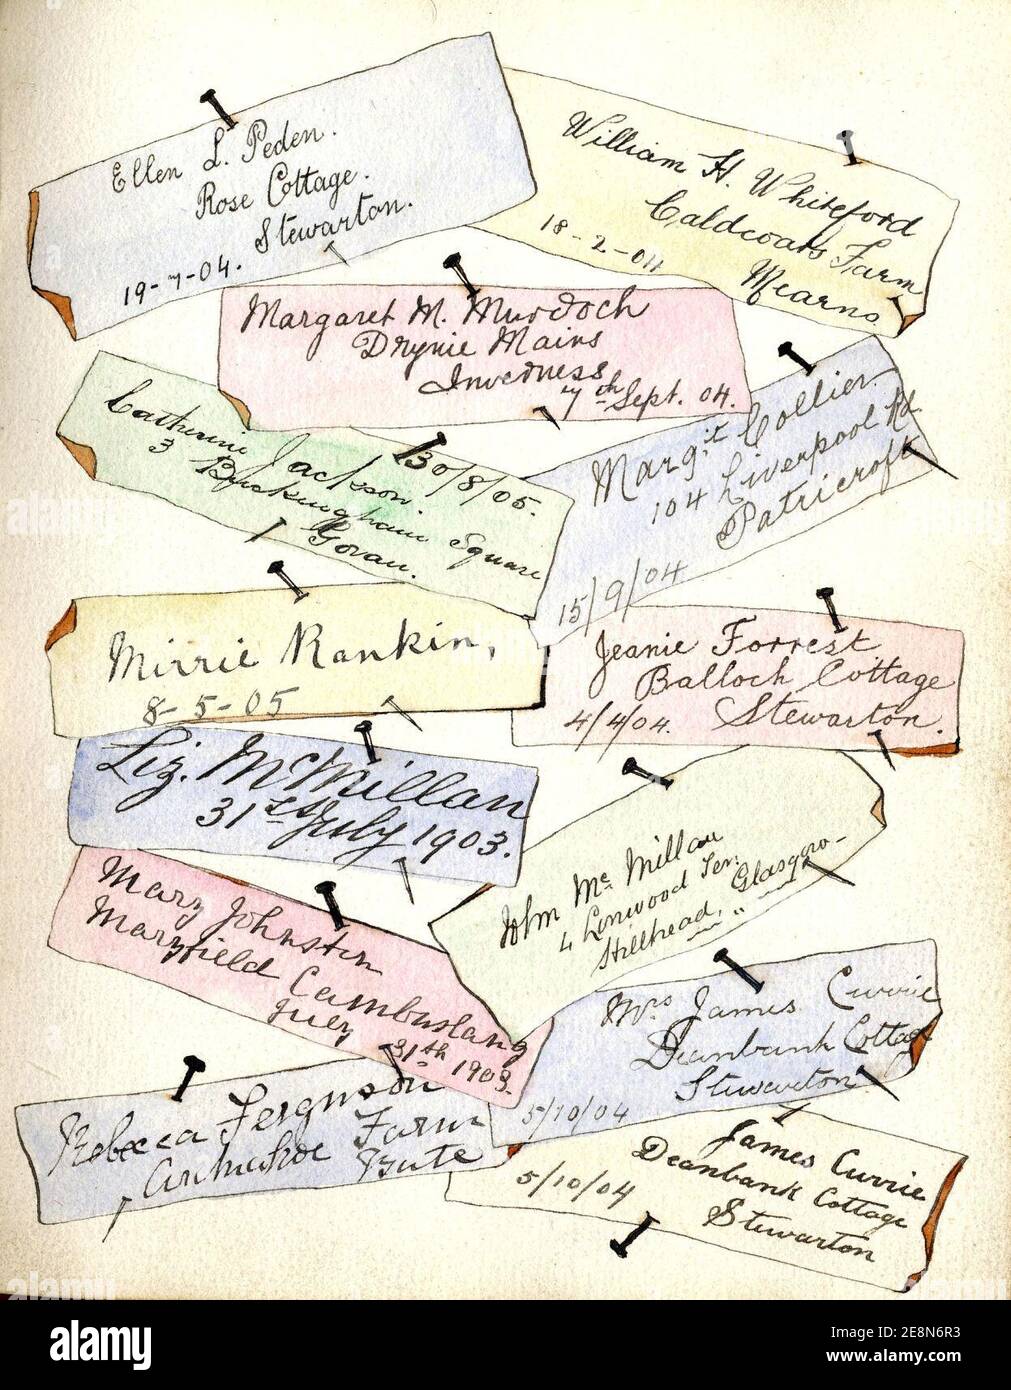 Ellen L. Peden.
Rose Cottage.
Stewarton.
19-7-04.
William H. Whiteford
Caldcoats Farm
Mearns.
18-2-04
Margaret M. Murdoch
Drynie Mains
Inverness
7th Sept. 04.
Catherine Jackson.
3 Buckingham Square
Govan.
30/8/05.
Marg't Collier.
104 Liverpool Rd.
Patricroft
15/9/04
Mirrie Rankin,
8-5-05
Jeanie Forrest
Balloch Cottage
Stewarton.
4/4/04.
Liz. McMillan
31st July 1903.
John McMillan
4 Linwood Ter.
Hillhead, Glasgow
Mary Johnston
Maryfield Cambuslang
July 31th 1903.
Mrs James Currie
Deanbank Cottage
Stewarton
5/10/04
Rebecca Ferguson
Farm
Bute
James Currie
Deanbank Cottage
Stewarton
5/10/04
alamy
Image ID: 2E8N6R3
www.alamy.com